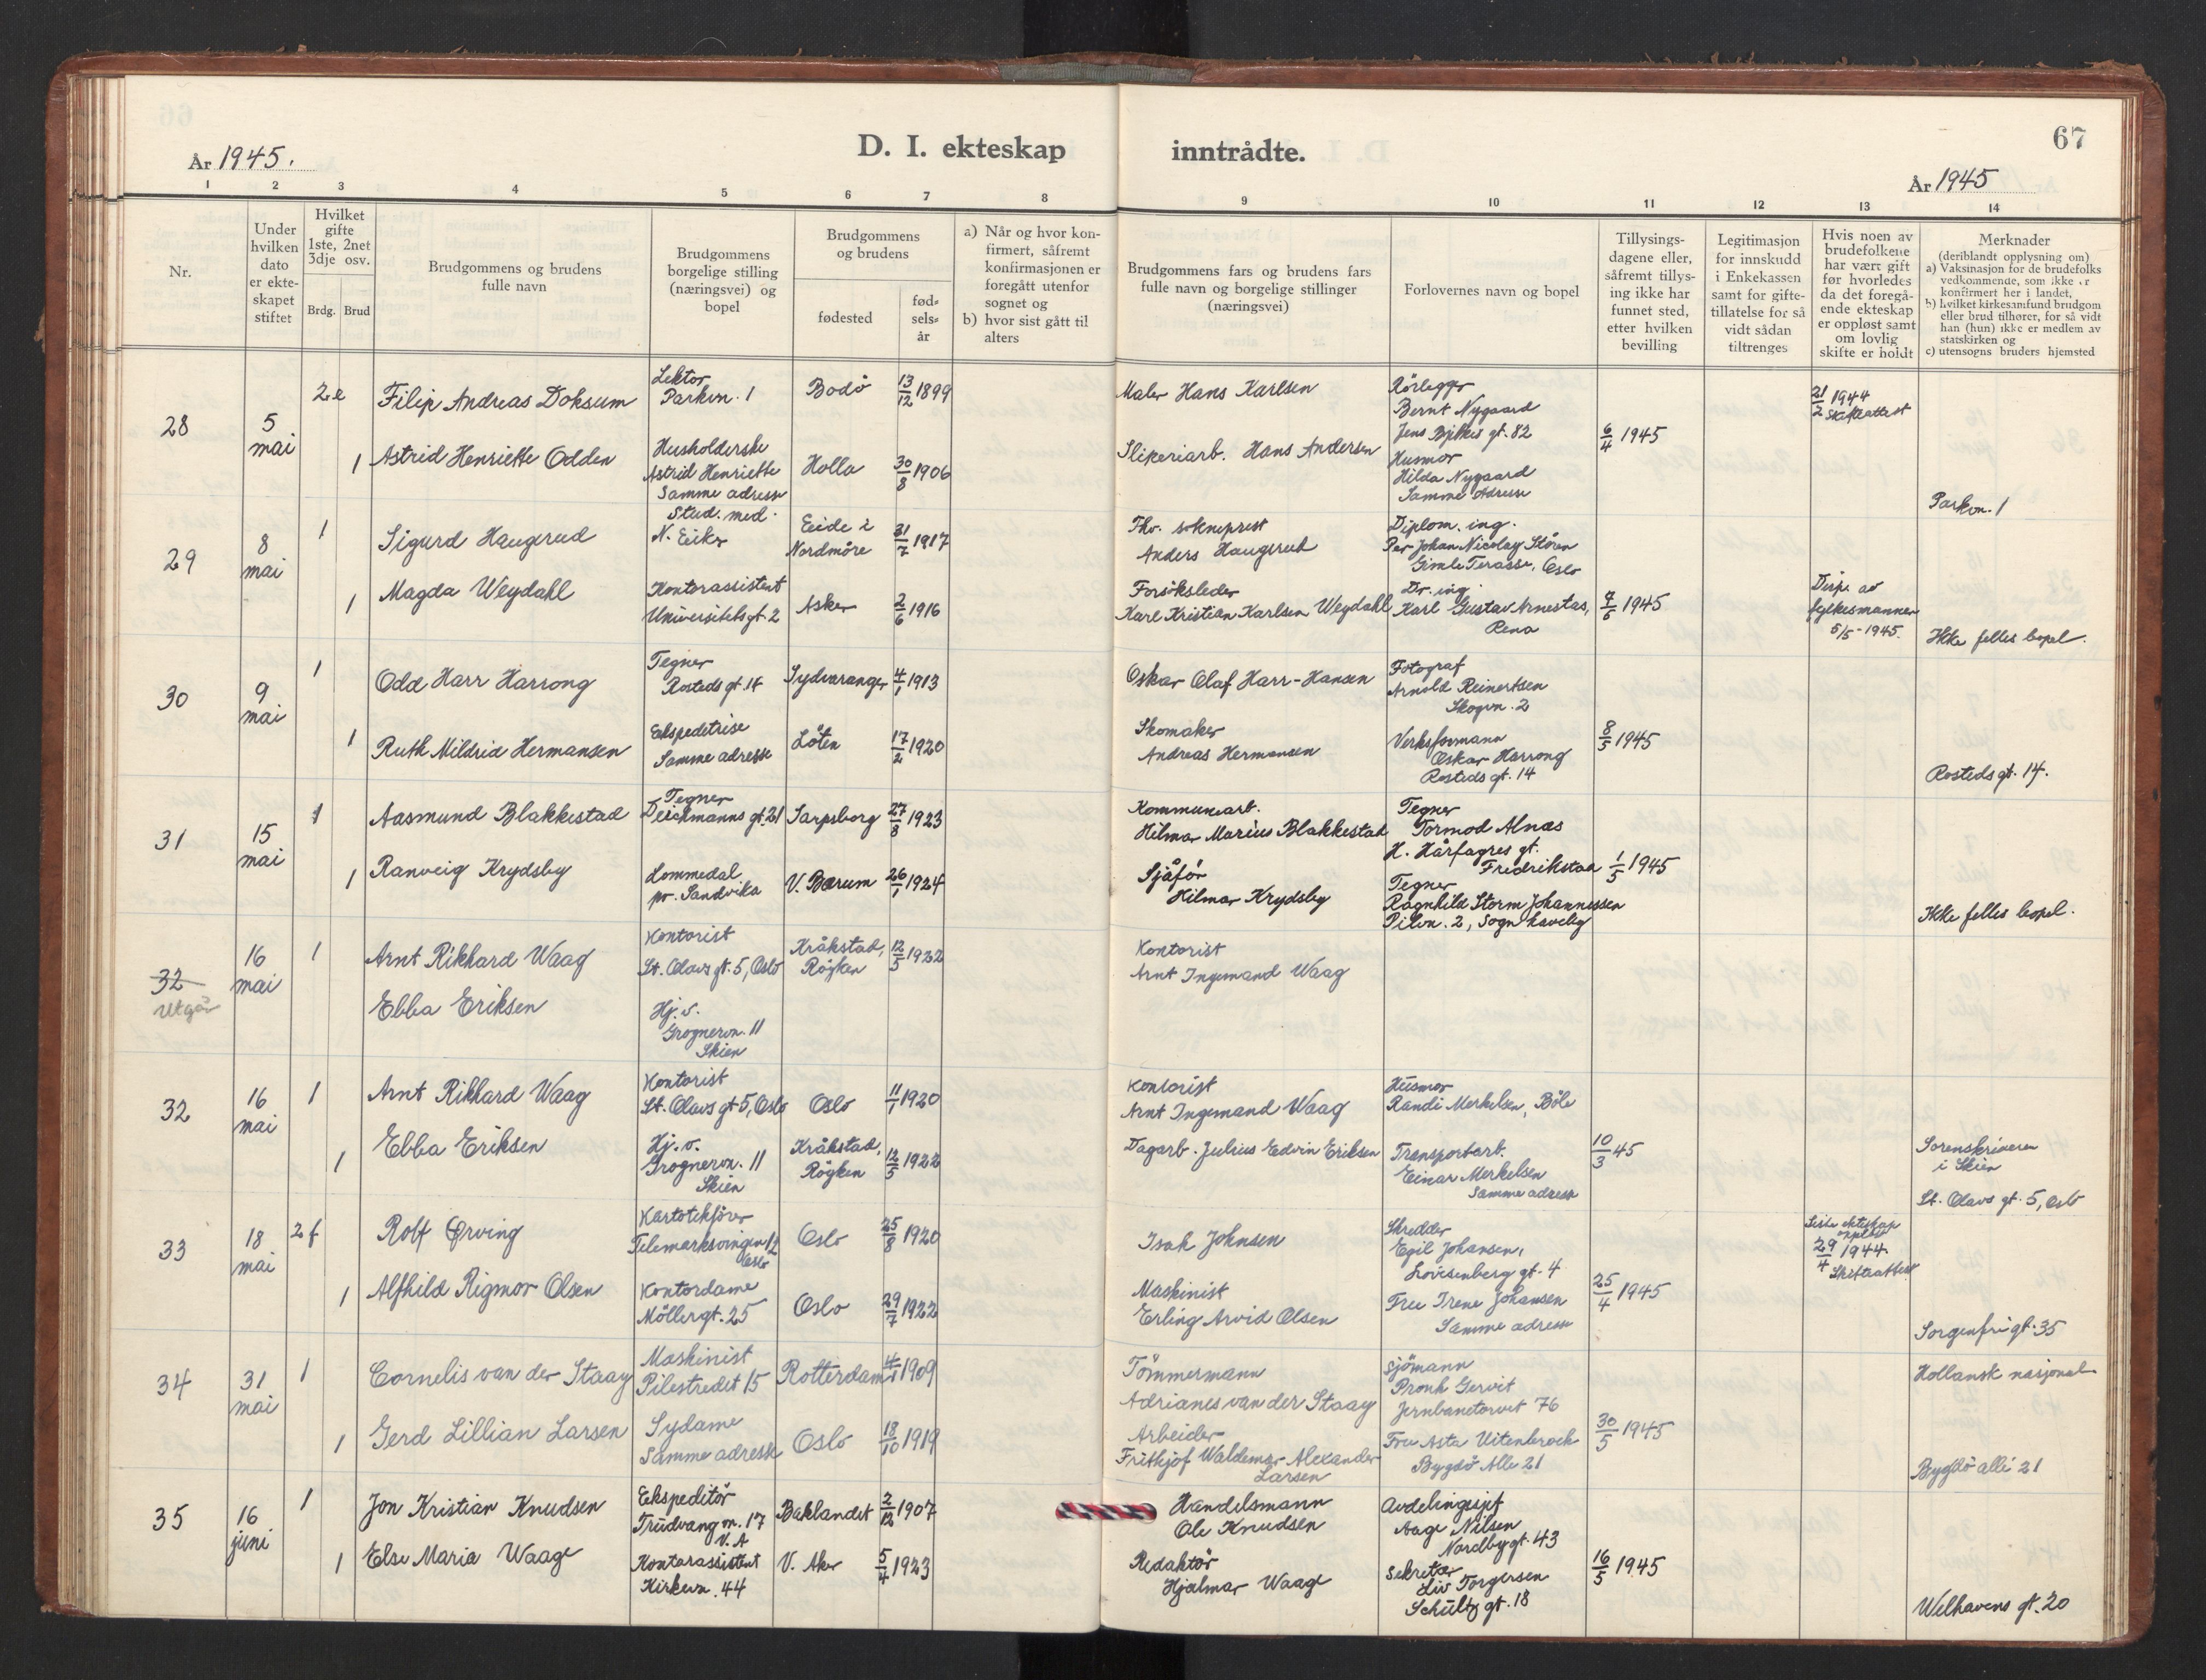 67
År 1945.
D. I. ekteskap inntrådte.
År 1945
1 2 3 4 5 6 7 8 9 10 11 12 13 14
Nr.
Under hvilken dato er ekteskapet stiftet
Hvilket gifte 1ste, 2net 3dje osv.
Brdg. Brud
Brudgommens og brudens fulle navn
Brudgommens borgelige stilling (næringsvei) og bopel
Brudgommens og brudens
fødested
fødselsår
a) Når og hvor konfirmert, såfremt konfirmasjonen er foregått utenfor sognet og
b) hvor sist gått til alters
Brudgommens fars og brudens fars fulle navn og borgelige stillinger (næringsvei)
Forlovernes navn og bopel
Tillysingsdagene eller, såfremt tillysing ikke har funnet sted, etter hvilken bevilling
Legitimasjon for innskudd i Enkekassen samt for giftetillatelse for så vidt sådan tiltrenges
Hvis noen av brudefolkene har vært gift før hvorledes da det foregående ekteskap er oppløst samt om lovlig skifte er holdt
Merknader
(deriblandt opplysning om)
a) Vaksinasjon for de brudefolks vedkommende, som ikke er konfirmert her i landet,
b) hvilket kirkesamfund brudgom eller brud tilhører, for så vidt han (hun) ikke er medlem av statskirken og
c) utensogns bruders hjemsted
28
5 mai
2 e
Filip Andreas Doksum
Lektor
Parkvn. 1
Bodø
13/12 1899
Maler Hans Karlsen
Rörlegger
Bernt Nygaard
Jens Bjelkes gt. 82
21/2 1944
Skifteattest
1
Astrid Henriette Odden
Husholderske
Astrid Henriette
Samme adresse
Holla
30/8 1906
Sliperiarb. Hans Andersen
Husmor
Hilda Nygaard
Samme Adresse
6/4 1945
Parkvn. 1
29
8 mai
1
Sigurd Haugerud
Stud. med.
N. Eiker
Eeide i
Nordmöre
31/7 1917
Fhv. sokneprest
Anders Haugerud
Diplom. ing.
Per Johan Nicolay Stören
Gimle Terasse, Oslo
1
Magda Weydahl
Kontorassistent
Universitetsgt. 2
Asker
2/6 1916
Forsöksleder
Karl Kristian Karlsen Weydahl
Dr. ing
Karl Gustav Arnestas,
Rena
1945
Disp. av
fylkesmannen
5/5-1945.
Ikke felles bopel.
30
9 mai
1
Odd Harr Harrong
Tegner
Rosteds gt. 14
Sydvaranger
4/1 1913
Oskar Olaf Harr-Hansen
Fotograf
Arnold Reinertsen
Skogvn. 2
1
Ruth Mildrid Hermansen
Ekspeditrise
Samme adresse
Löten
17/2 1920
Skomaker
Andreas Hermansen
Verksformann
Oskar Harrong
Rosteds gt. 14
8/5 1945
Rosteds gt. 14.
31
15 mai
1
Aasmund Blakkestad
Tegner
Deichmanns gt. 21
Sarpsborg
27/8 1923
Kommunearb.
Hilmar Marius Blakkestad
Tegner
Tormod Alnæs
H. Hårfagres gt.
Fredrikstad
1
Ranveig Krydsby
Lommedal
pr. Sandvika
V. Bærum
26/1 1924
Sjåför
Hilmar Krydsby
Tegner
Ragnhild Storm Johannessen
Pilvn. 2, Sogn haveby
1/5 1945
Ikke felles bopel.
32
Utgår
16 mai
1
Arnt Rikhard Waag
Kontorist
St. Olavs gt. 5, Oslo
Kråkstad,
Röyken
12/5 1922
Kontorist
Arnt Ingemand Waag
Ebba Eriksen
Hj. v.
Grognervn. 11
Skien
32
16 mai
1
Arnt Rikhard Waag
Kontorist
St. Olavs gt 5, Oslo
Oslo
11/1 1920
Kontorist
Arnt Ingemand Waag
Husmor
Randi Merkelsen, Böle
1
Ebba Eriksen
Hj. v.
Grognervn. 11
Skien
Kråkstad,
Röyken
12/5 1922
Dagarb. Julius Edvin Eriksen
Transportarb.
Einar Merkelsen
Samme adresse
10/3 45
Sorenskriveren
i Skien
St. Olavs gt. 5, Oslo
33
18 mai
2 f
Rolf Ørving
Kartotekförer
Telemarksvingen 12
Oslo
Oslo
25/8 1920
Isak Johnsen
Skredder
Egil Johansen,
Lovisenberg gt. 4
Siste ekteskap
oppløst
29/4 1944.
Skifteattest
1
Alfhild Rigmor Olsen
Kontordame
Möllergt. 25
Oslo
29/7 1922
Maskinist
Erling Arvid Olsen
Fru Irene Johansen
Samme adresse
25/4 1945
Sorgenfrigt. 35
34
31 mai
1
Cornelis van der Staay
Maskinist
Pilestredet 15
Rotterdam
1909
Tömmermann
Adrianes van der Staay
Sjömann
Pronk Gerrit
Jernbanetorvet 76
Hollansk nasjonal
1
Gerd Lillian Larsen
Sydame
Samme adresse
Oslo
18/10 1919
Arbeider
Frithjof Waldemar Alexander
Larsen
Fru Asta Uitenbroek
Bygdö Alle 21
30/5 1945
Bygdö alle 21
35
16 juni
1
Jon Kristian Knudsen
Ekspeditör
Trudvang vn. 17
V. A
Baklandet
2/12 1907
Handelsmann
Ole Knudsen
Avdelingssjef
Aage Nilsen
Nordbygt. 43
1
Else Maria Waage
Kontorassistent
Kirkevn. 44
V. Aker
5/4 1923
Redaktör
Hjalmar Waage
Sekretær
Liv Torgersen
Schultz gt. 18
16/5 1945
Welhavens gt. 20